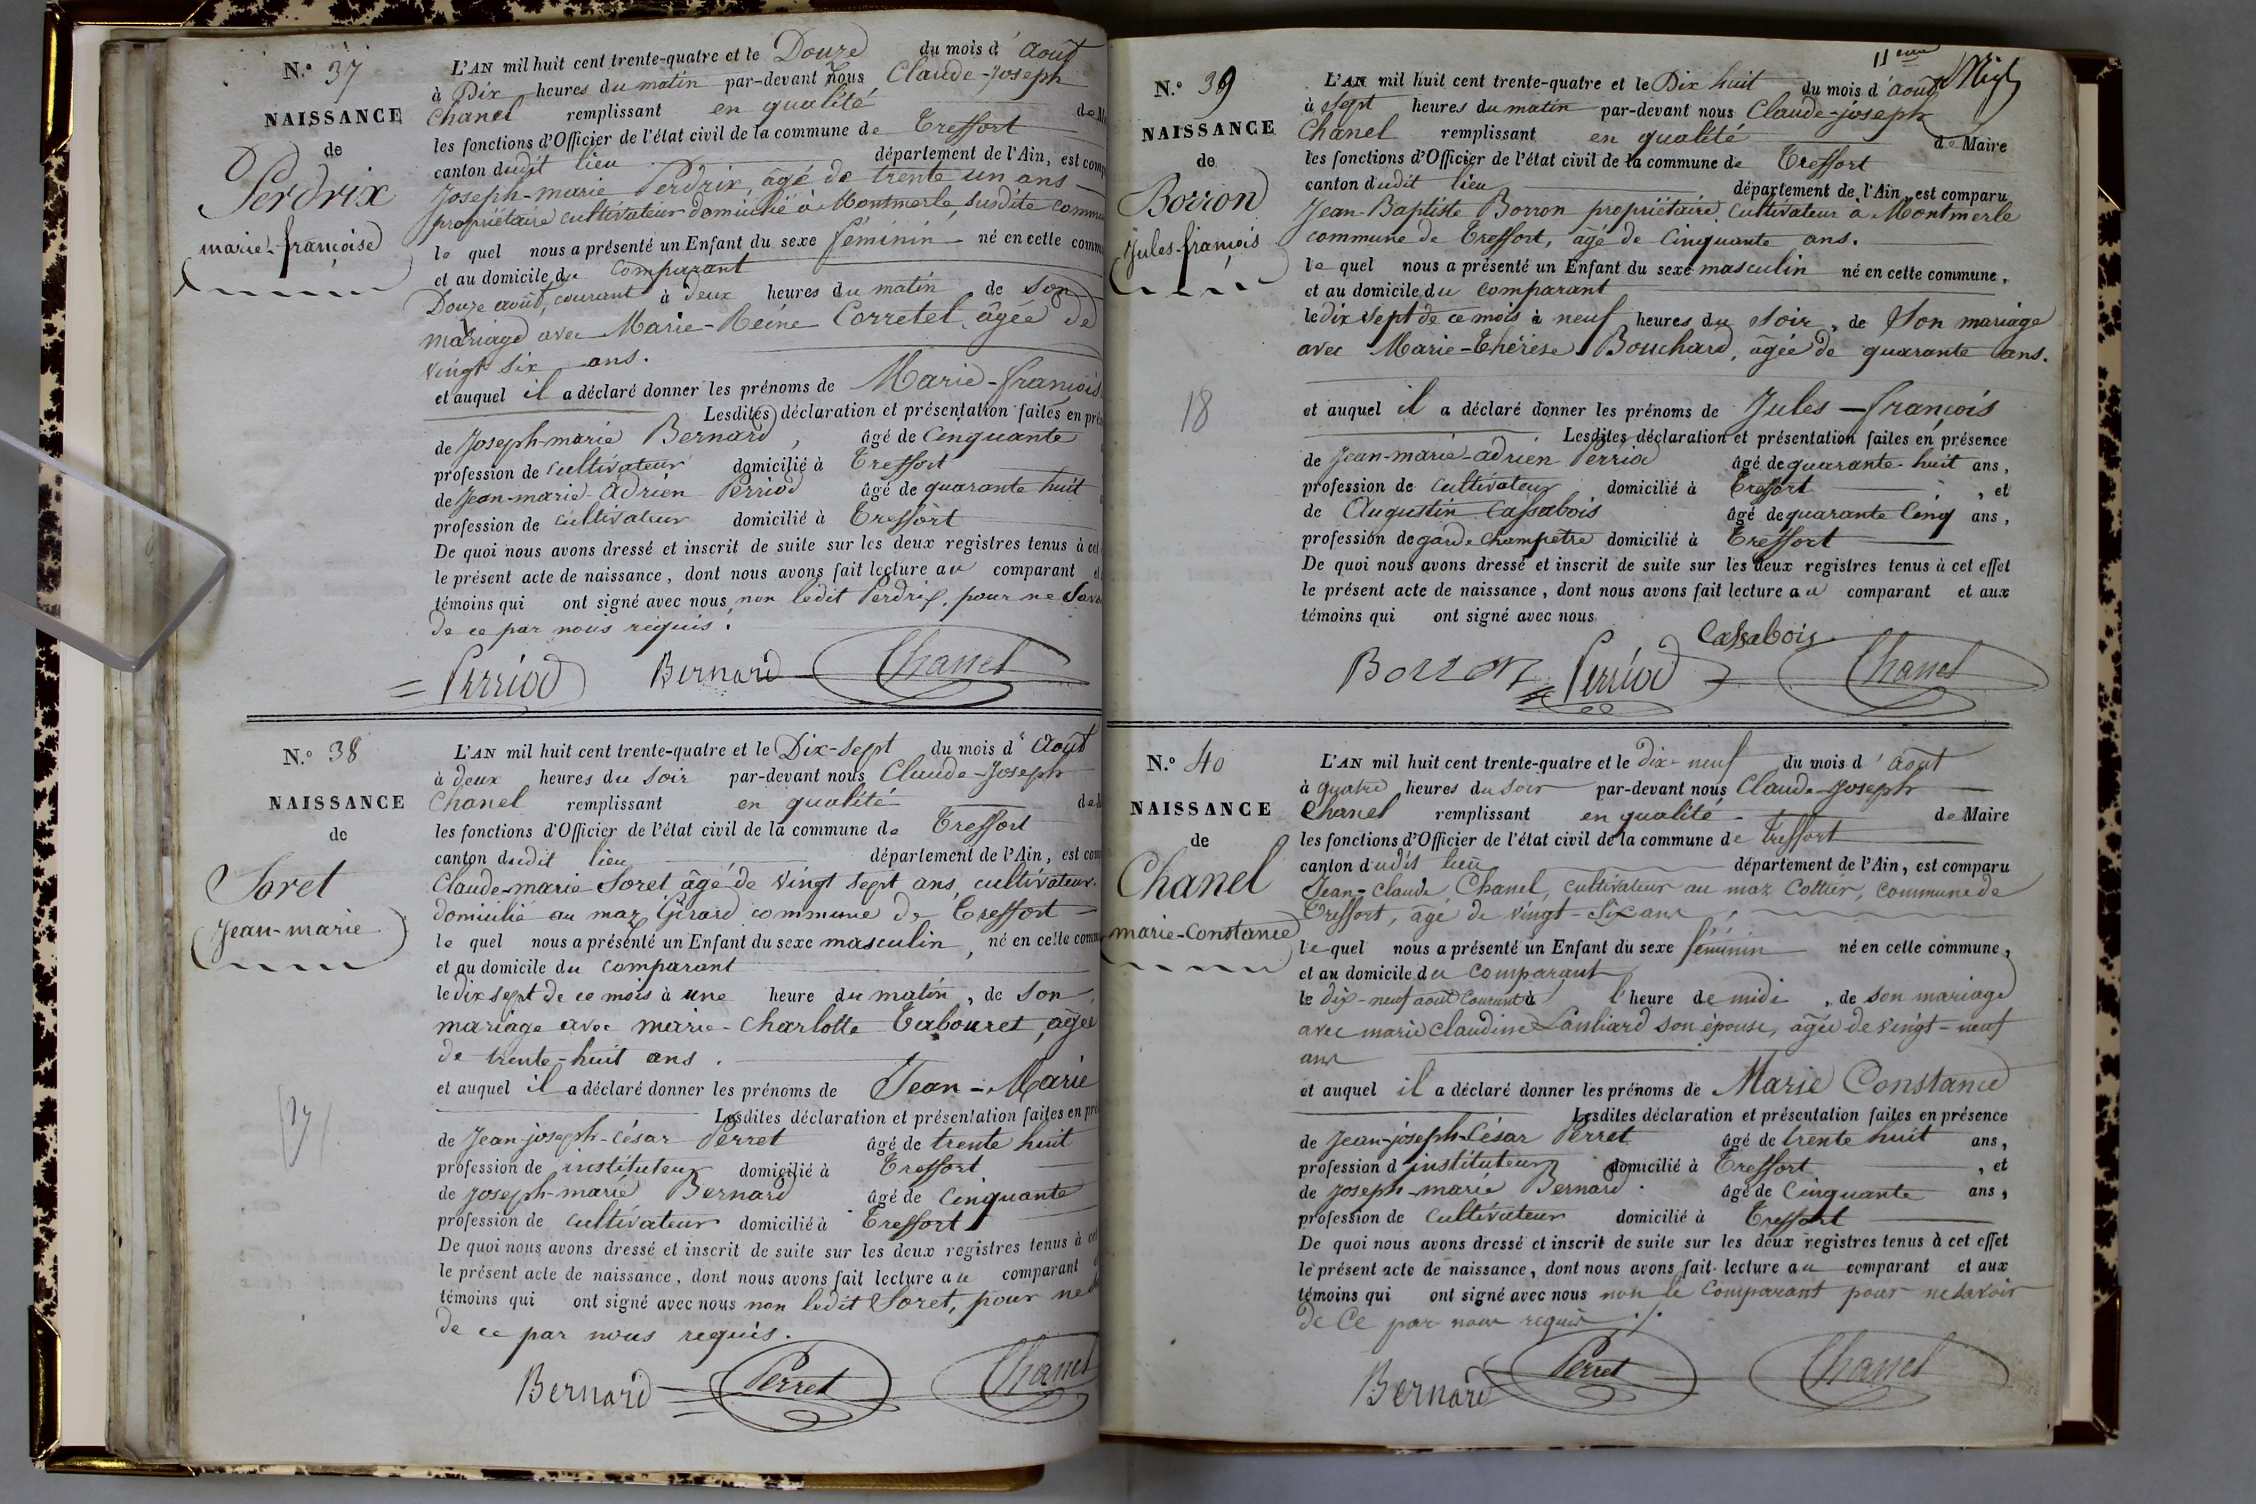 N.° 37
NAISSANCE
de
Perdrix
marie-françoise
L'AN mil huit cent trente-quatre et le Douze du mois d'août
à Dix heures du matin par-devant nous Claude-Joseph
Chanel remplissant en qualité de
les fonctions d'Officier de l'état civil de la commune de Treffort
canton dudit lieu département de l'Ain, est
Joseph-marie Perdrix, âgé de trente un ans
propriétaire cultivateur domicilié à Montmerle, susdite
le quel nous a présenté un Enfant du sexe féminin né en cette
et au domicile du comparant
Douze août, courant à deux heures du matin de son
mariage avec Marie-Reine Corretel, âgée de
vingt six ans.
et auquel il a déclaré donner les prénoms de Marie-
Lesdites déclaration et présentation faites en
de Joseph-marie Bernard, âgé de Cinquante
profession de cultivateur domicilié à Treffort
de Jean-marie-Adrien Perriod âgé de quarante huit
profession de cultivateur domicilié à Treffort
De quoi nous avons dressé et inscrit de suite sur les deux registres tenus à cet
le présent acte de naissance, dont nous avons fait lecture au comparant
témoins qui ont signé avec nous non ledit Perdrix, pour ne
de ce par nous requis.
Perriod Bernard Chanel
N.° 38
NAISSANCE
de
Soret
Jean-marie
17
L'AN mil huit cent trente-quatre et le Dix-sept du mois d'Août
à deux heures du soir par-devant nous Claude-Joseph
Chanel remplissant en qualité de
les fonctions d'Officier de l'état civil de la commune de Treffort
canton dudit lieu département de l'Ain, est
Claude-marie Soret âgé de vingt sept ans, cultivateur
domicilié au maz Girard commune de Treffort
le quel nous a présenté un Enfant du sexe masculin, né en cette
et au domicile du comparant
le dix sept de ce mois à une heure du matin, de son
mariage avec marie-Charlotte Tabouret, âgée
de trente-huit ans.
et auquel il a déclaré donner les prénoms de Jean-Marie
Lesdites déclaration et présentation faites en
de Jean-joseph-César Perret âgé de trente huit
profession de instituteur domicilié à Treffort
de Joseph-marie Bernard âgé de Cinquante
profession de cultivateur domicilié à Treffort
De quoi nous avons dressé et inscrit de suite sur les deux registres tenus à
le présent acte de naissance, dont nous avons fait lecture au comparant
témoins qui ont signé avec nous non ledit Soret, pour ne
de ce par nous requis.
Bernard Perret Chanel
11eme
N.° 39
NAISSANCE
de
Borron
Jules-françois
18
L'AN mil huit cent trente-quatre et le Dix huit du mois d'août
à sept heures du matin par-devant nous Claude-joseph
Chanel remplissant en qualité de Maire
les fonctions d'Officier de l'état civil de la commune de Treffort
canton dudit lieu département de l'Ain, est comparu
Jean-Baptiste Borron propriétaire cultivateur à Montmerle
commune de Treffort, âgé de Cinquante ans.
le quel nous a présenté un Enfant du sexe masculin né en cette commune,
et au domicile du comparant
le dix sept de ce mois à neuf heures du soir, de Son mariage
avec Marie-Thérèse Bouchard, âgée de quarante ans.
et auquel il a déclaré donner les prénoms de Jules-françois
Lesdites déclaration et présentation faites en présence
de Jean-marie-adrien Perriod âgé de quarante-huit ans,
profession de cultivateur domicilié à Treffort, et
de Augustin Cassabois âgé de quarante Cinq ans,
profession de garde champêtre domicilié à Treffort
De quoi nous avons dressé et inscrit de suite sur les deux registres tenus à cet effet
le présent acte de naissance, dont nous avons fait lecture au comparant et aux
témoins qui ont signé avec nous
Cassabois
Borron Perriod Chanel
N.° 40
NAISSANCE
de
Chanel
marie-Constance
L'AN mil huit cent trente-quatre et le dix-neuf du mois d'août
à quatre heures du soir par-devant nous Claude-Joseph
Chanel remplissant en qualité de Maire
les fonctions d'Officier de l'état civil de la commune de Treffort
canton dudit lieu département de l'Ain, est comparu
Jean-Claude Chanel, cultivateur au maz Cottier, commune de
Treffort, âgé de vingt-six ans,
le quel nous a présenté un Enfant du sexe féminin né en cette commune,
et au domicile du comparant
le dix-neuf août Courant à l'heure de midi, de son mariage
avec marie claudine son épouse, âgée de vingt-neuf
ans
et auquel il a déclaré donner les prénoms de Marie Constance
Lesdites déclaration et présentation faites en présence
de Jean-joseph-César Perret âgé de trente huit ans,
profession d'instituteur domicilié à Treffort, et
de Joseph-marie Bernard. âgé de Cinquante ans,
profession de cultivateur domicilié à Treffort
De quoi nous avons dressé et inscrit de suite sur les deux registres tenus à cet effet
le présent acte de naissance, dont nous avons fait lecture au comparant et aux
témoins qui ont signé avec nous non le Comparant pour ne savoir
de Ce par nous requis ./.
Bernard Perret Chanel